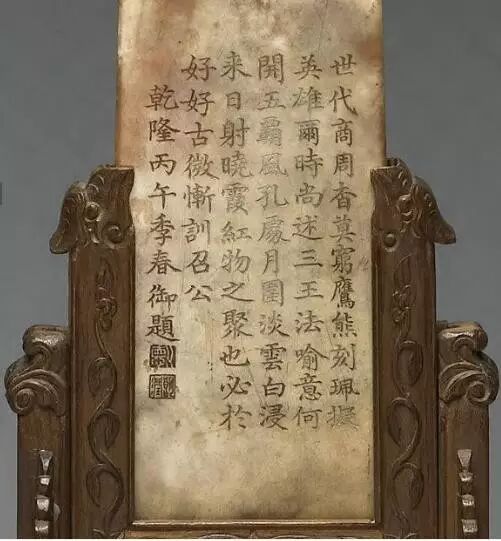 世代商周杳莫窮鷹熊刻珮擬
英雄爾時尚述三王法喻意何
開五霸風孔處月圍淡雲白浸
来日射曉霞紅物之聚也必於
好好古微慚訓召公
乾隆丙午季春御題